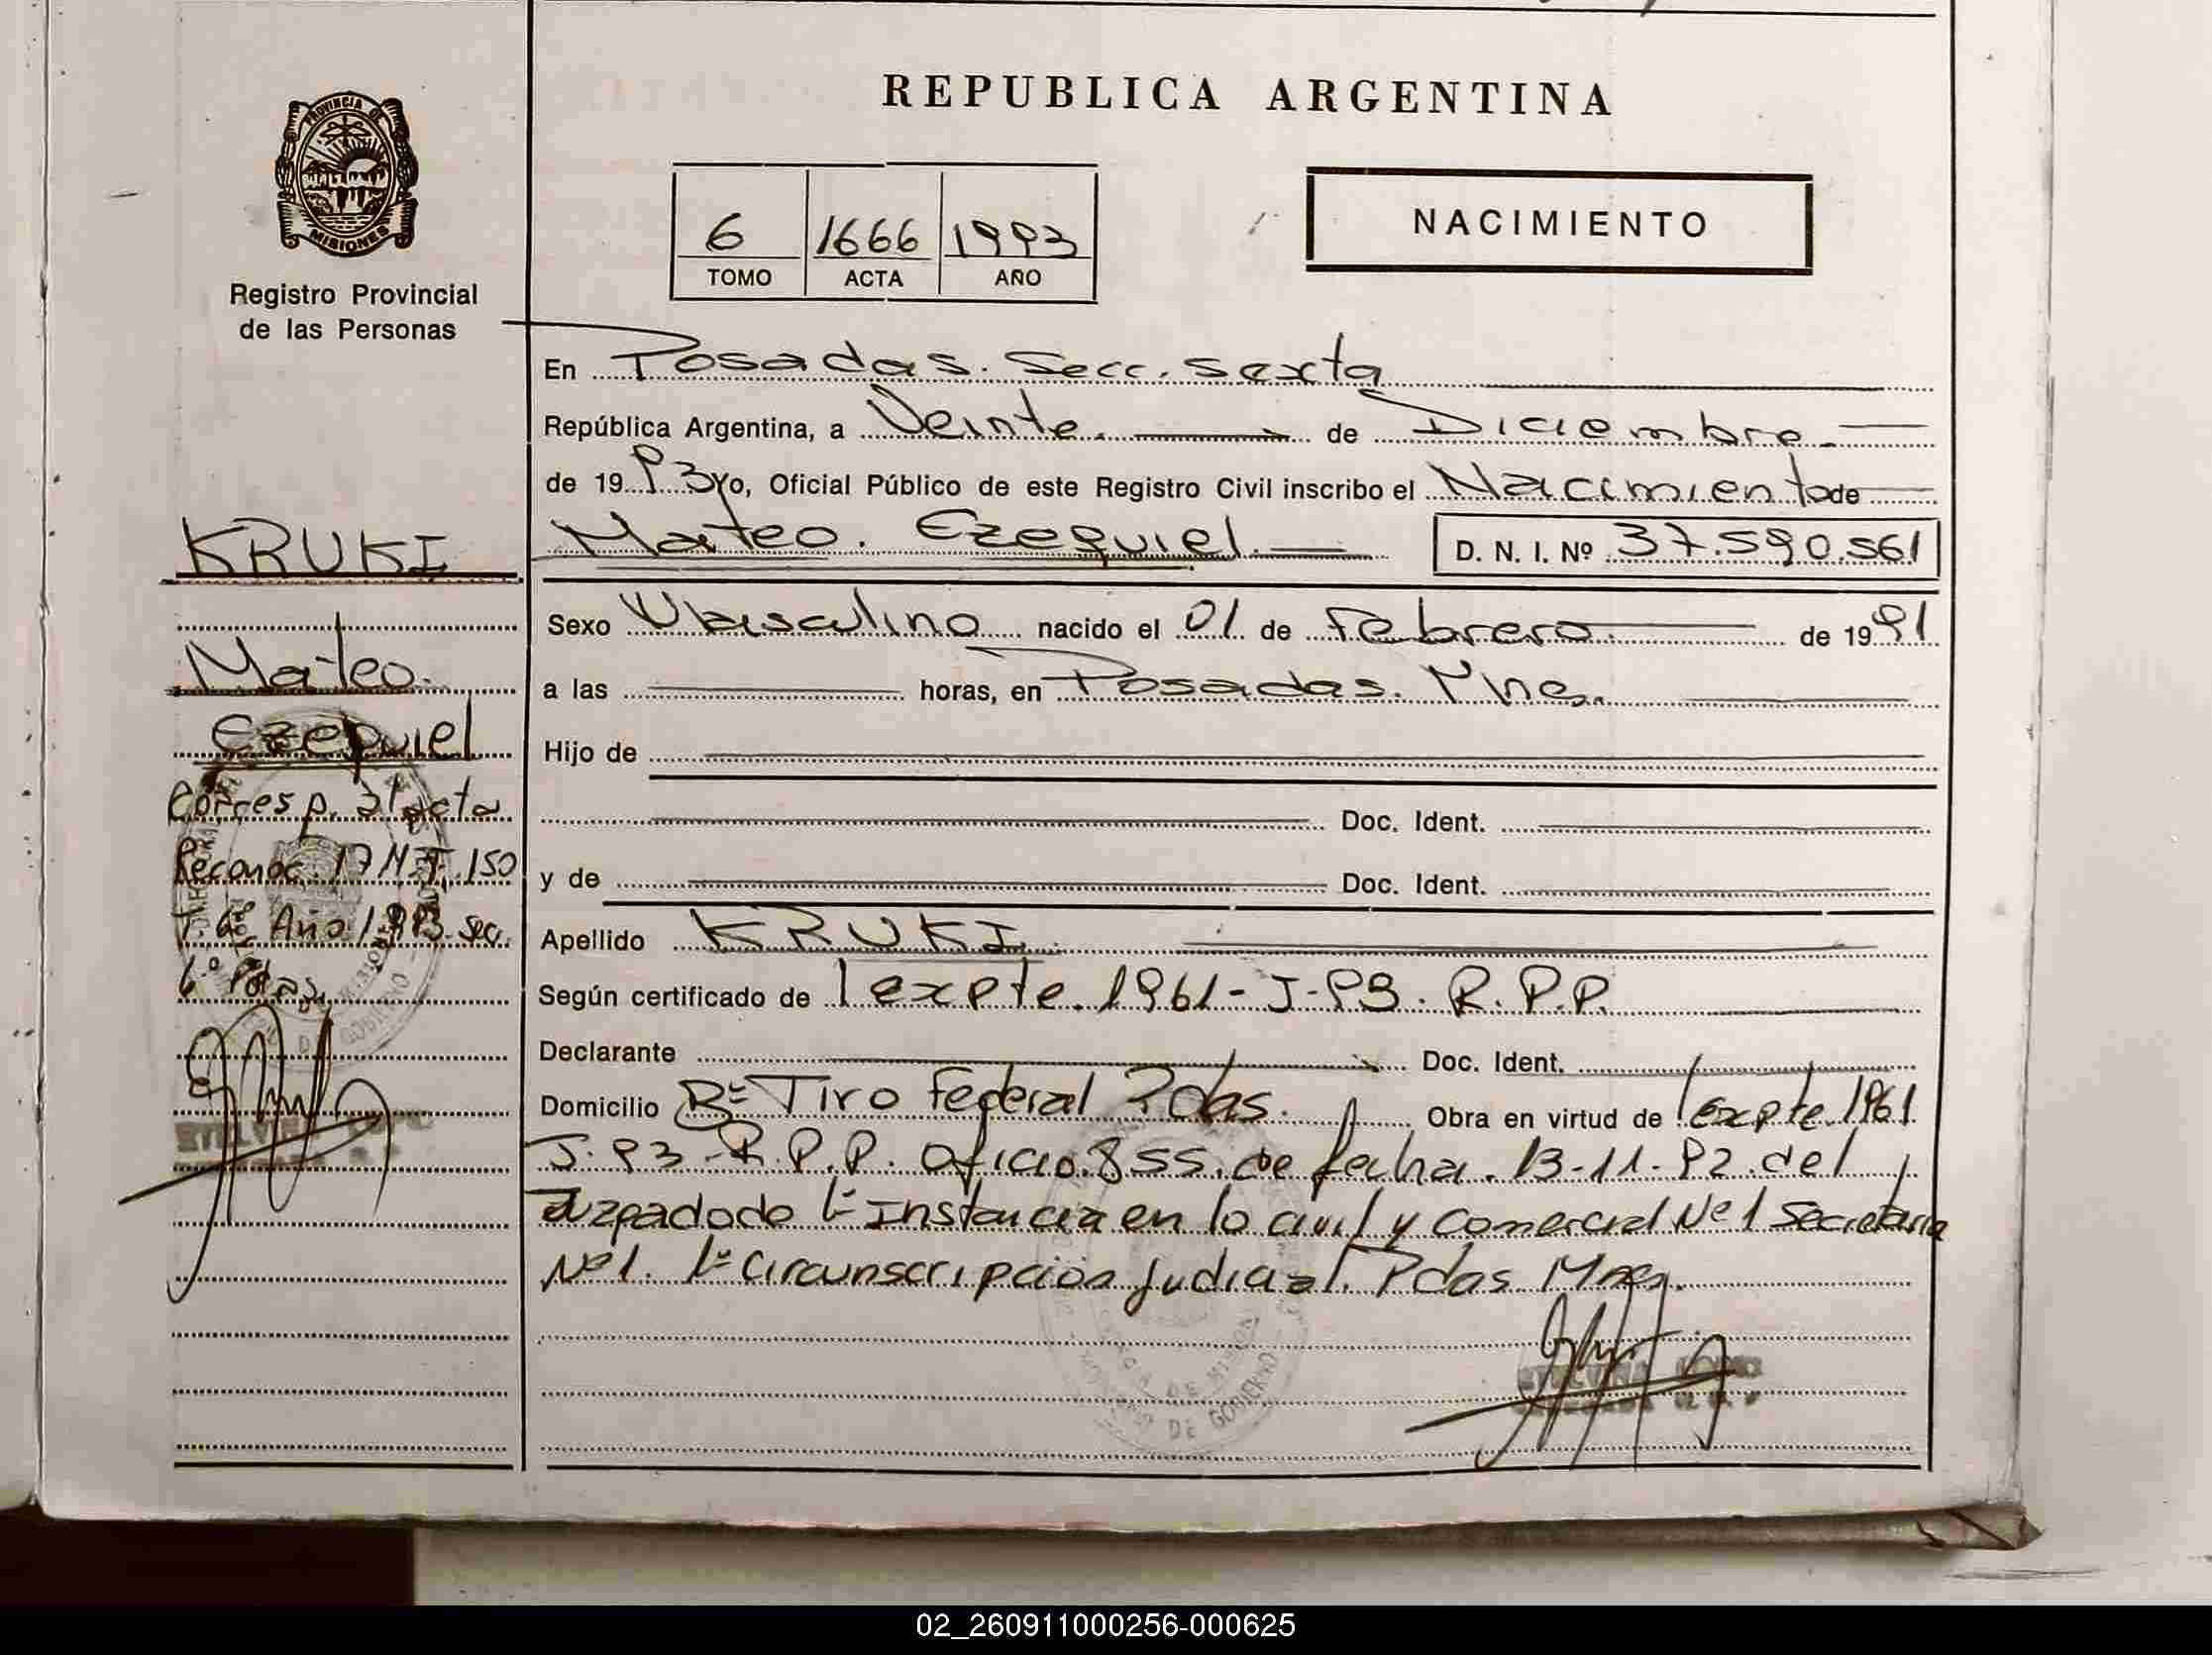 REPUBLICA ARGENTINA
PROVINCIA DE
MISIONES
Registro Provincial
de las Personas
6 1666 1993
TOMO ACTA AÑO
NACIMIENTO
En Posadas. Secc. Sexta
República Argentina, a Veinte. de Diciembre.
de 1993 Yo, Oficial Público de este Registro Civil inscribo el Nacimiento de
Mateo. Ezequiel. D. N. I. Nº 37.590.561
Sexo Masculino nacido el 01 de Febrero. de 1991
a las horas, en Posadas. Mnes.
Hijo de
Doc. Ident.
y de Doc. Ident.
Apellido KRUKI
Según certificado de expte. 1961-J-93. R.P.P.
Declarante Doc. Ident.
Domicilio Bº Tiro Federal Pdas. Obra en virtud de expte. 1961
J. 93-R.P.P. Oficio. 855. de fecha. 13-11-92. del
Juzgado de 1ª Instancia en lo civil y Comercial Nº 1 Secretaria
Nº 1. 1ª Circunscripción Judicial. Pdas. Mnes.
KRUKI
Mateo.
Ezequiel
Corresp. al acta
Reconoc. 17 150
T. 6º Año 1993. sec.
6º Pdas.
DE GOBIERNO
DE MISIONES
DE GOBIERNO
02_260911000256-000625